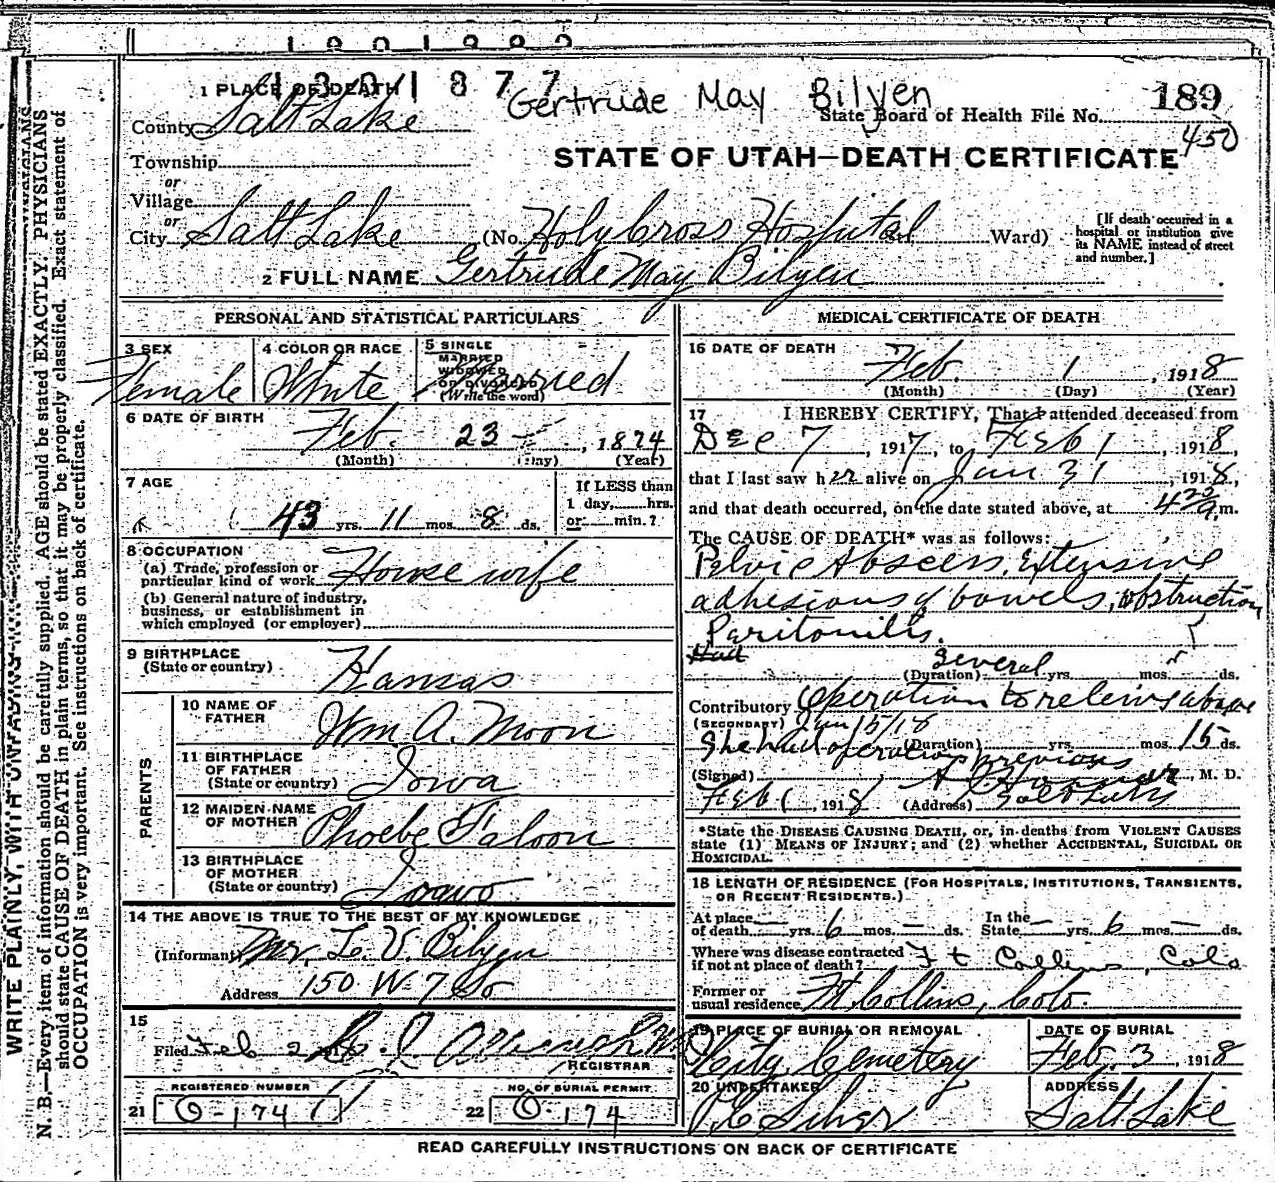 1301877
1 PLACE OF DEATH
Gertrude May Bilyen
189
County Salt Lake
State Board of Health File No.
450
Township
STATE OF UTAH—DEATH CERTIFICATE
or
Village
or
City Salt Lake (No. Holy Cross Hospital Ward)
[If death occurred in a hospital or institution give its NAME instead of street and number.]
2 FULL NAME Gertrude May Bilyen
PERSONAL AND STATISTICAL PARTICULARS
3 SEX Female
4 COLOR OR RACE White
5 SINGLE MARRIED WIDOWED OR DIVORCED (Write the word) Married
6 DATE OF BIRTH
Feb. 23 , 1874
(Month) (Day) (Year)
7 AGE
If LESS than
1 day, hrs.
43 yrs. 11 mos. 8 ds. or min.?
8 OCCUPATION
(a) Trade, profession or
particular kind of work House wife
(b) General nature of industry,
business, or establishment in
which employed (or employer)
9 BIRTHPLACE
(State or country) Kansas
PARENTS
10 NAME OF
FATHER Wm A. Moon
11 BIRTHPLACE
OF FATHER
(State or country) Iowa
12 MAIDEN NAME
OF MOTHER Phoebe Faloon
13 BIRTHPLACE
OF MOTHER
(State or country)
14 THE ABOVE IS TRUE TO THE BEST OF MY KNOWLEDGE
(Informant) Mr. L. V. Bilyen
Address 150 W 7 So
15
Filed Feb 2
REGISTRAR
REGISTERED NUMBER
21 O-174
NO. OF BURIAL PERMIT
22 O-174
MEDICAL CERTIFICATE OF DEATH
16 DATE OF DEATH
Feb. 1 , 1918
(Month) (Day) (Year)
17 I HEREBY CERTIFY, That I attended deceased from
Dec 7 , 1917, to Feb 1 , 1918,
that I last saw her alive on Jan 31 , 1918,
and that death occurred, on the date stated above, at a.m.
The CAUSE OF DEATH* was as follows:
Pelvic Abscess, Extensive
adhesions of bowels, obstruction
Paritonitis.
(Duration) several yrs. mos. ds.
Contributory Operation to relieve above
(SECONDARY) Jan 15/18
(Duration) yrs. mos. 15 ds.
She had operation previous
(Signed) , M. D.
Feb 1, 1918 (Address) Salt Lake
*State the DISEASE CAUSING DEATH, or, in deaths from VIOLENT CAUSES
state (1) MEANS OF INJURY; and (2) whether ACCIDENTAL, SUICIDAL OR
HOMICIDAL.
18 LENGTH OF RESIDENCE (FOR HOSPITALS, INSTITUTIONS, TRANSIENTS,
OR RECENT RESIDENTS.)
At place of death — yrs. 6 mos. — ds. In the State — yrs. 6 mos. — ds.
Where was disease contracted
if not at place of death? Ft Collins, Colo
Former or
usual residence Ft. Collins, Colo.
19 PLACE OF BURIAL OR REMOVAL
City Cemetery
DATE OF BURIAL
Feb. 3 1918
20 UNDERTAKER
ADDRESS
Salt Lake
READ CAREFULLY INSTRUCTIONS ON BACK OF CERTIFICATE
WRITE PLAINLY, WITH UNFADING INK
N. B.—Every item of information should be carefully supplied. AGE should be stated EXACTLY. PHYSICIANS
should state CAUSE OF DEATH in plain terms, so that it may be properly classified. Exact statement of
OCCUPATION is very important. See instructions on back of certificate.